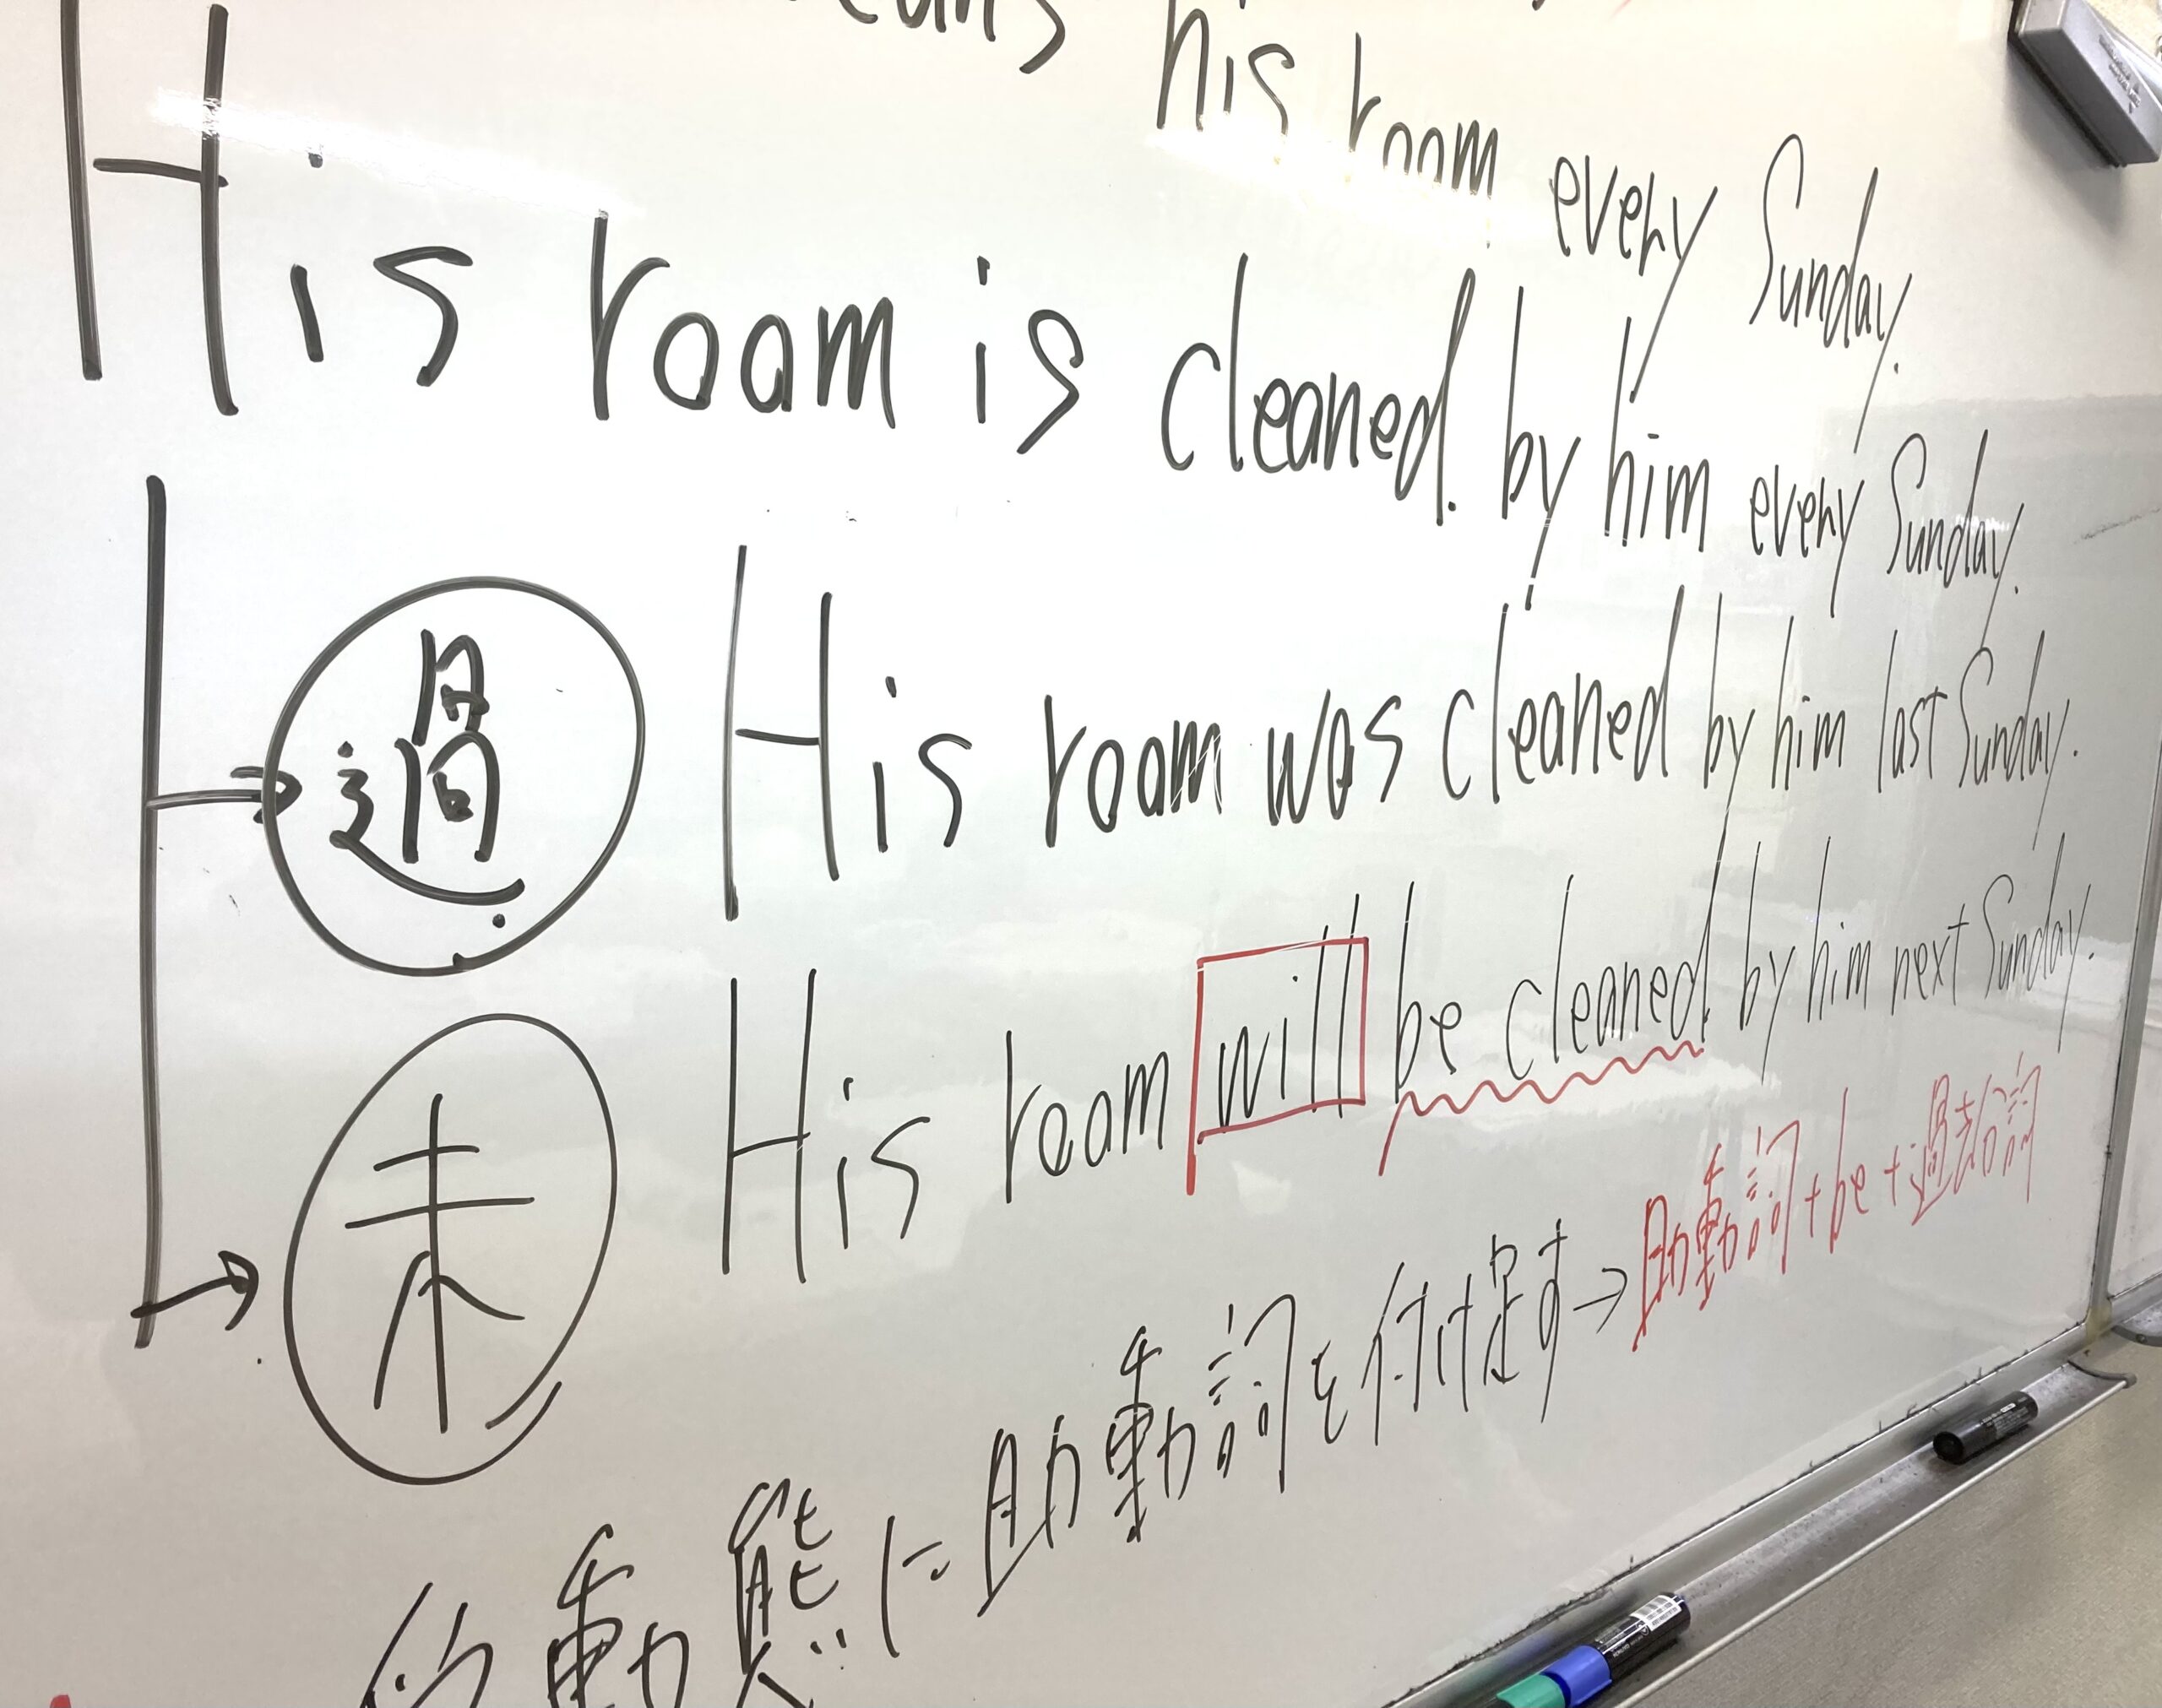 his room every Sunday.
His room is cleaned. by him every Sunday.
過 His room was cleaned by him last Sunday.
未 His room will be cleaned by him next Sunday.
動態に助動詞を付け足す→助動詞+be+過去分詞